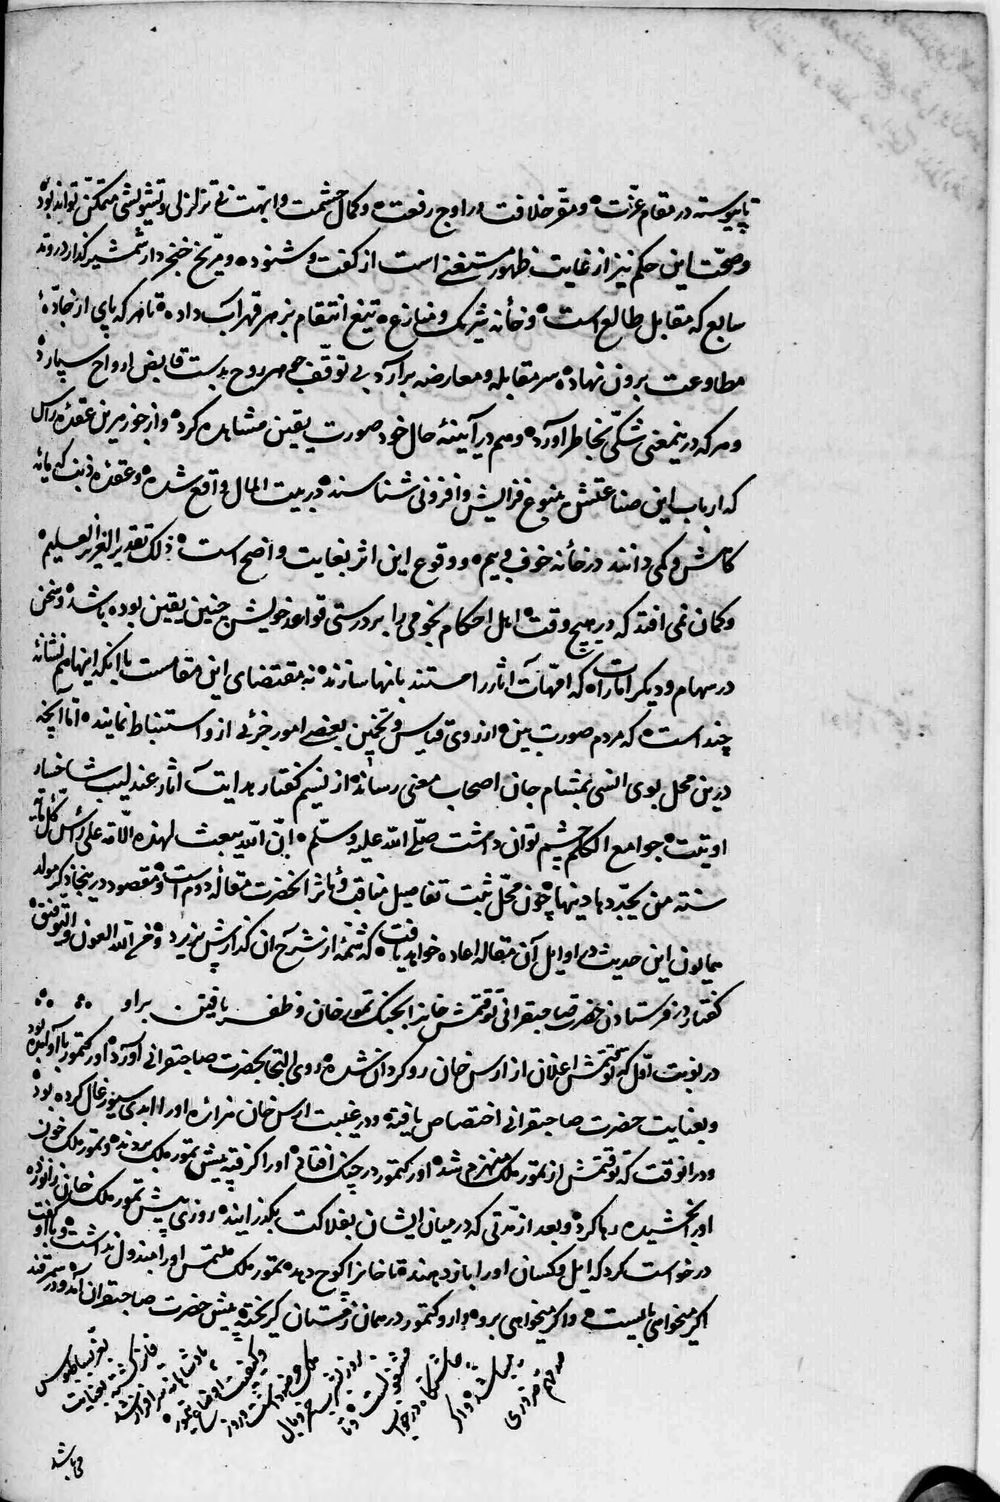 پیوسته در مقام عزّت و مقرّ خلافت در اوج رفعت و کمال حشمت و ابّهت بی تزلزلی و تشویشی متمکّن تواند بود
و صحّت این حکم نیز از غایت ظهور مستغنی است از کفت و شنود و مرّیخ خنجر دار شمشیر کذار در وتد
سابع که مقابل طالع است و خانه شریک و منازع تیغ انتقام بزهر قهر آب داده تا هر که پای از جادّۀ
مطاوعت برون نهاده سر مقابله و معارضه برآرد بی توقّف جوهر روح بدست قابض ارواح سپارد
و هر که درینمعنی شکّی بخاطر آورد هم در آیینۀ حال خود صورت یقین مشاهده کرد و از جوزهرین عقدۀ رأس
که ارباب این صناعتش منبع فزایش و افزونی شناسند در بیت المال واقع شده و عقدۀ ذنب که مایۀ
کاهش و کمی دانند در خانه خوف و بیم و وقوع این اثر بغایت واضح است ذلک تقدیر العزیز العلیم
و کمان نمی افتد که در هیچ وقت اهل احکام نجومی را بر درستی قواعد خویش چنین یقین بوده باشد و سخن
در سهام و دیکر امارات که امّهات آثار را مستند بانها سازند نه مقتضای این مقامست با آنکه اینها هم نشانۀ
چند است که مردم صورت بین از روی قیاس و تخمین بعضی امور جزئی از و استنباط نمایند امّا آنچه
درین محل بوی انسی بمشام جان اصحاب معنی رساند از نسیم کفتار هدایت آثار عندلیب شاخسار
اوتیت جوامع الکلم چشم توان داشت صلّی الله علیه وسلّم انّ الله یبعث لهذه الامّة علی رأس کلّ مایة
سنة من یجدّد لها دینها چون محلّ ثبت تفاصیل مناقب و مآثر آنحضرت مقاله دوم است و مقصود در ینجا ذکر مولد
همایون این حدیث در اوایل آن مقاله اعاده خواهد یافت که شمّه از شرح آن کذارش پذیرد و من الله العون و التّوفیق
کفتار در فرستادن حضرت صاحبقرانی توقتمش خانرا بجنک تمور خان و ظفر یافتن براو
در نوبت اوّل که توقتمش اغلان از ارس خان رو کردان شده روی التجا بحضرت صاحبقرانی آورد اورکتمور با او آمده بود
و بعنایت حضرت صاحبقرانی اختصاص یافته و در غیبت ارس خان هزاره او را ابدی سیورغال کرده بود
و در انوقت که توقتمش از تمور ملک منهزم شد اورکتمور در جنک افتاد او را کرفته پیش تمور ملک بردند و تمور ملک خون
او بخشیده رها کرد و بعد از مدّتی که در میان ایشان بفلاکت بکذرانیده روزی پیش تمور ملک خان زانو زده
درخواست کرد که ایل و کسان او را باز دهند تا خانرا کوچ دهد تمور ملک ملتمس او را مبذول نداشت و با او کفت
اکر میخواهی بایست و اکر میخواهی برو و اورکتمور در همان زمستان کریخته پیش حضرت صاحبقران آمد و در سمرقند
بعزّ بساطبوس
فایز کشته بعنایت
پادشاهانه سرافراز شد
و کیفیت اوضاع تمور
ملک عرضه داشت
می باشد